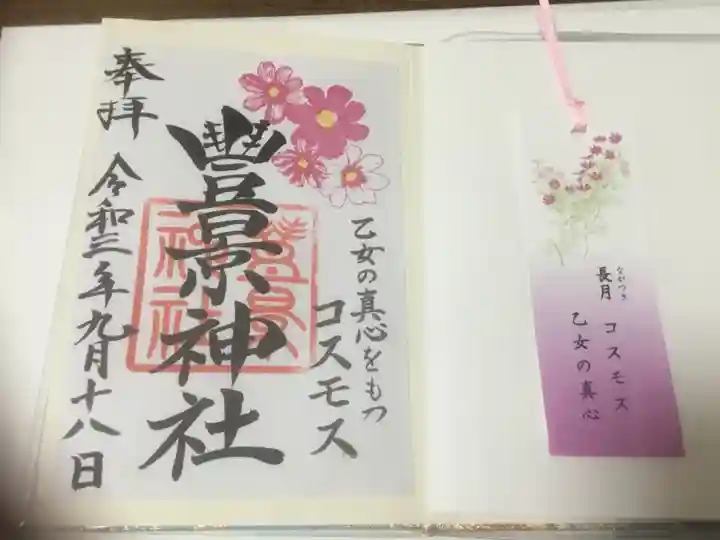 奉拝
令和三年九月十八日
豐景神社
豐景
神社
乙女の真心をもつ
コスモス
ながつき
長月
コスモス
乙女の真心